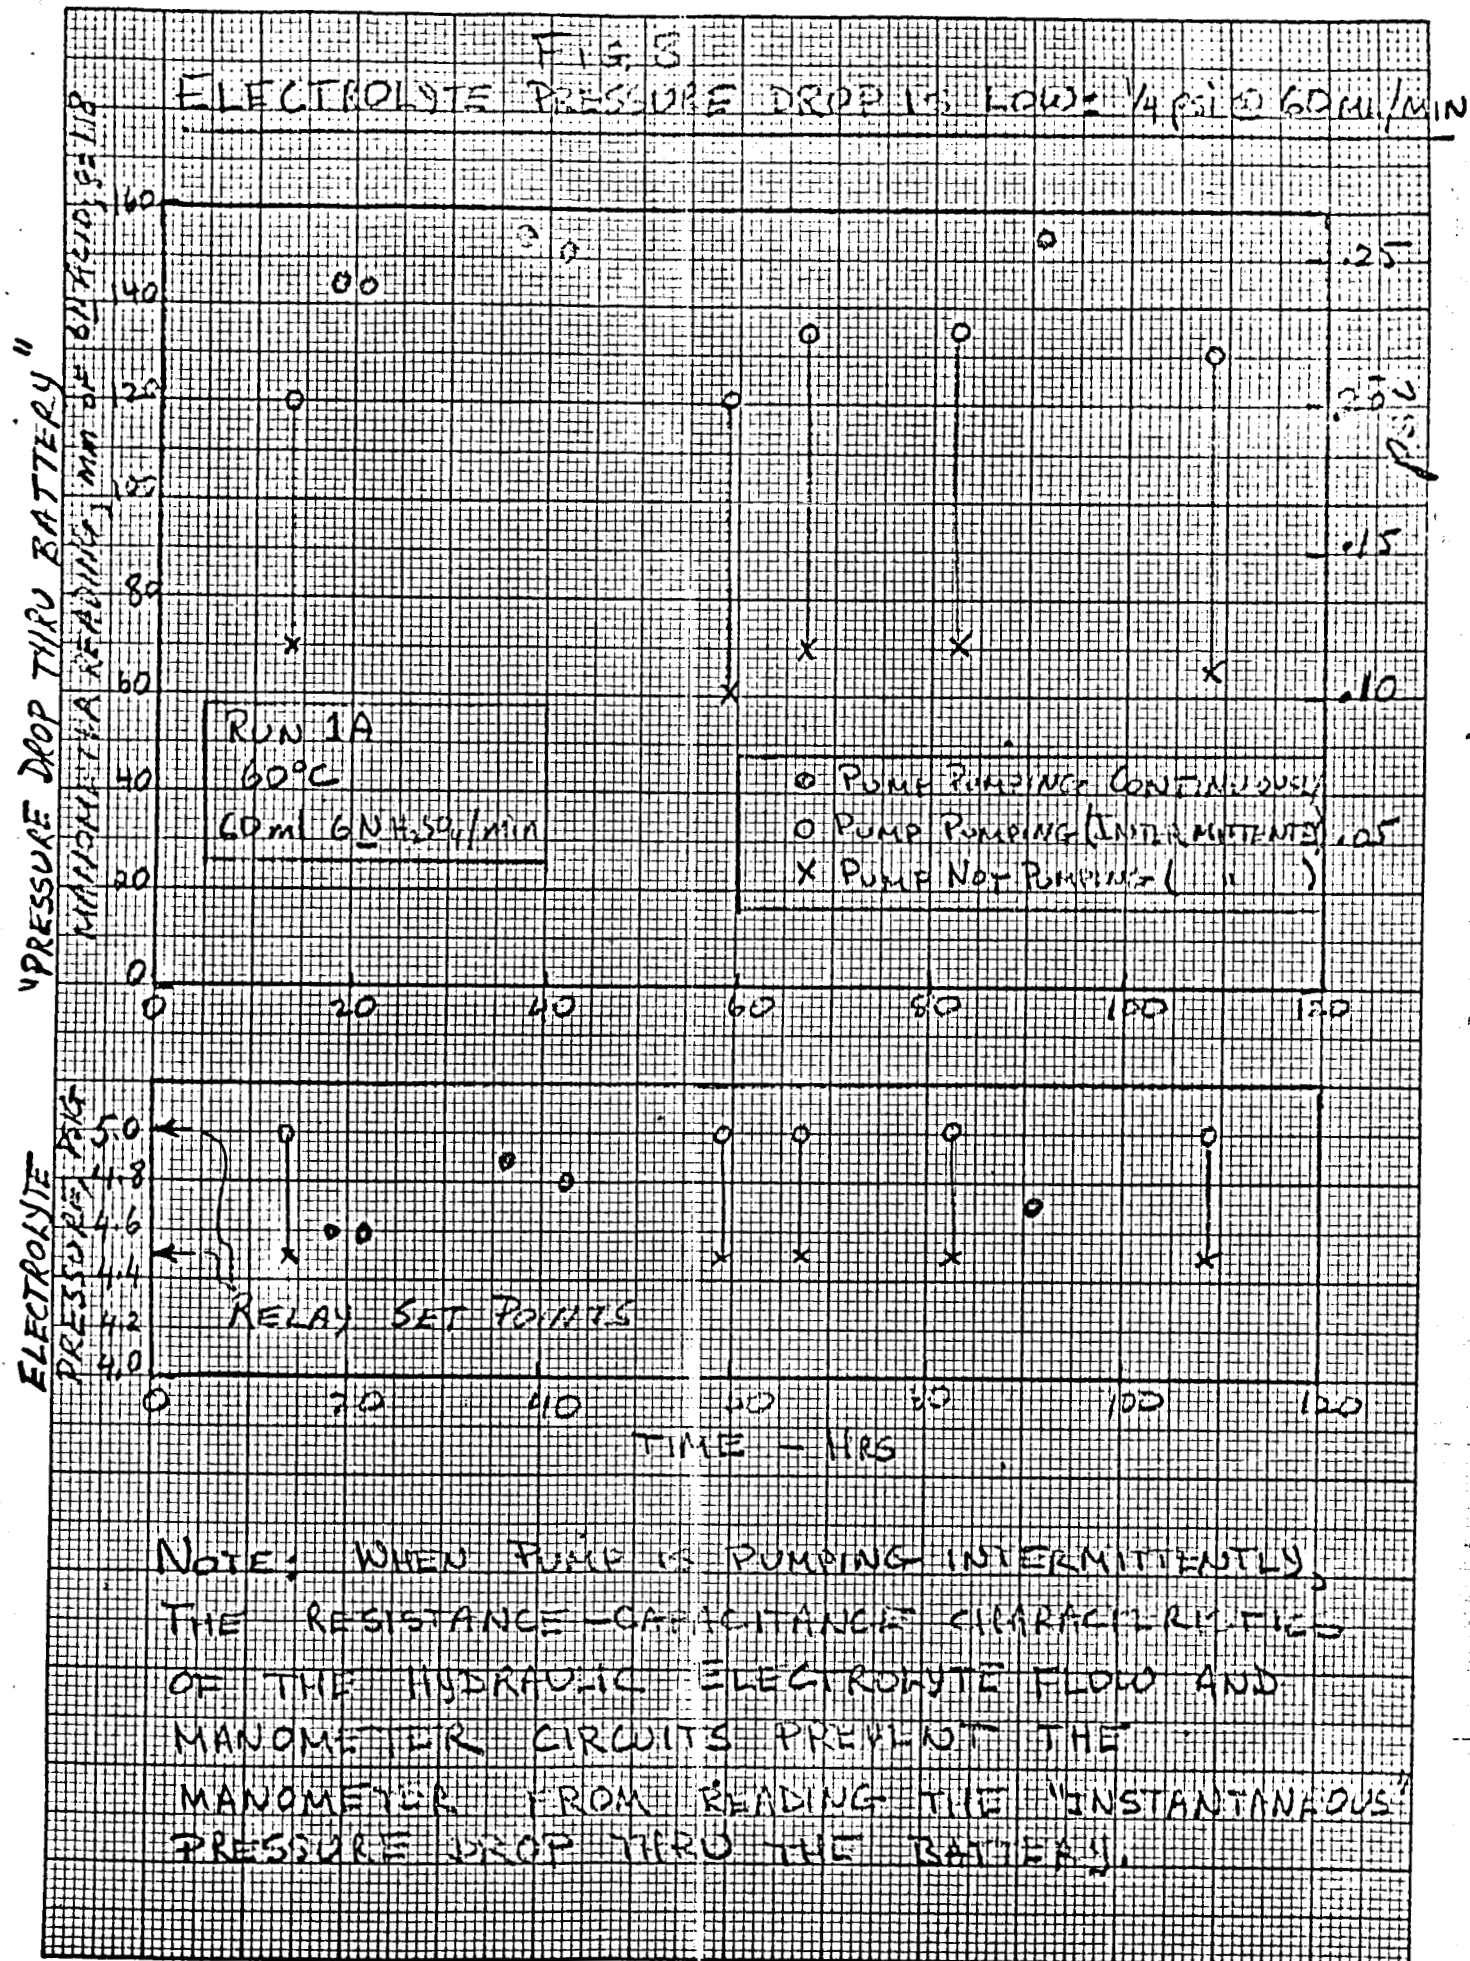 FIG. 5
ELECTROLYTE PRESSURE DROP IS LOW: 1/4 psi @ 60 ml/MIN
"PRESSURE DROP THRU BATTERY"
MANOMETER READING, MM OF 6N ACID, ρ=1.18
160
140
120
100
80
60
40
20
0
.25
.20
psi
.15
.10
.05
RUN 1A
60°C
60 ml 6N H₂SO₄/min
PUMP PUMPING CONTINUOUSLY
O PUMP PUMPING (INTERMITTENT)
X PUMP NOT PUMPING ( " )
0 20 40 60 80 100 120
ELECTROLYTE
PRESSURE, PSIG
5.0
4.8
4.6
4.4
4.2
4.0
RELAY SET POINTS
0 20 40 60 80 100 120
TIME - HRS
NOTE: WHEN PUMP IS PUMPING INTERMITTENTLY,
THE RESISTANCE-CAPACITANCE CHARACTERISTICS
OF THE HYDRAULIC ELECTROLYTE FLOW AND
MANOMETER CIRCUITS PREVENT THE
MANOMETER FROM READING THE "INSTANTANEOUS"
PRESSURE DROP THRU THE BATTERY.